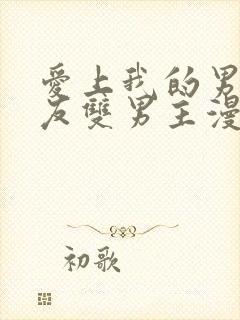 愛上我的男
友雙男主漫
初歌